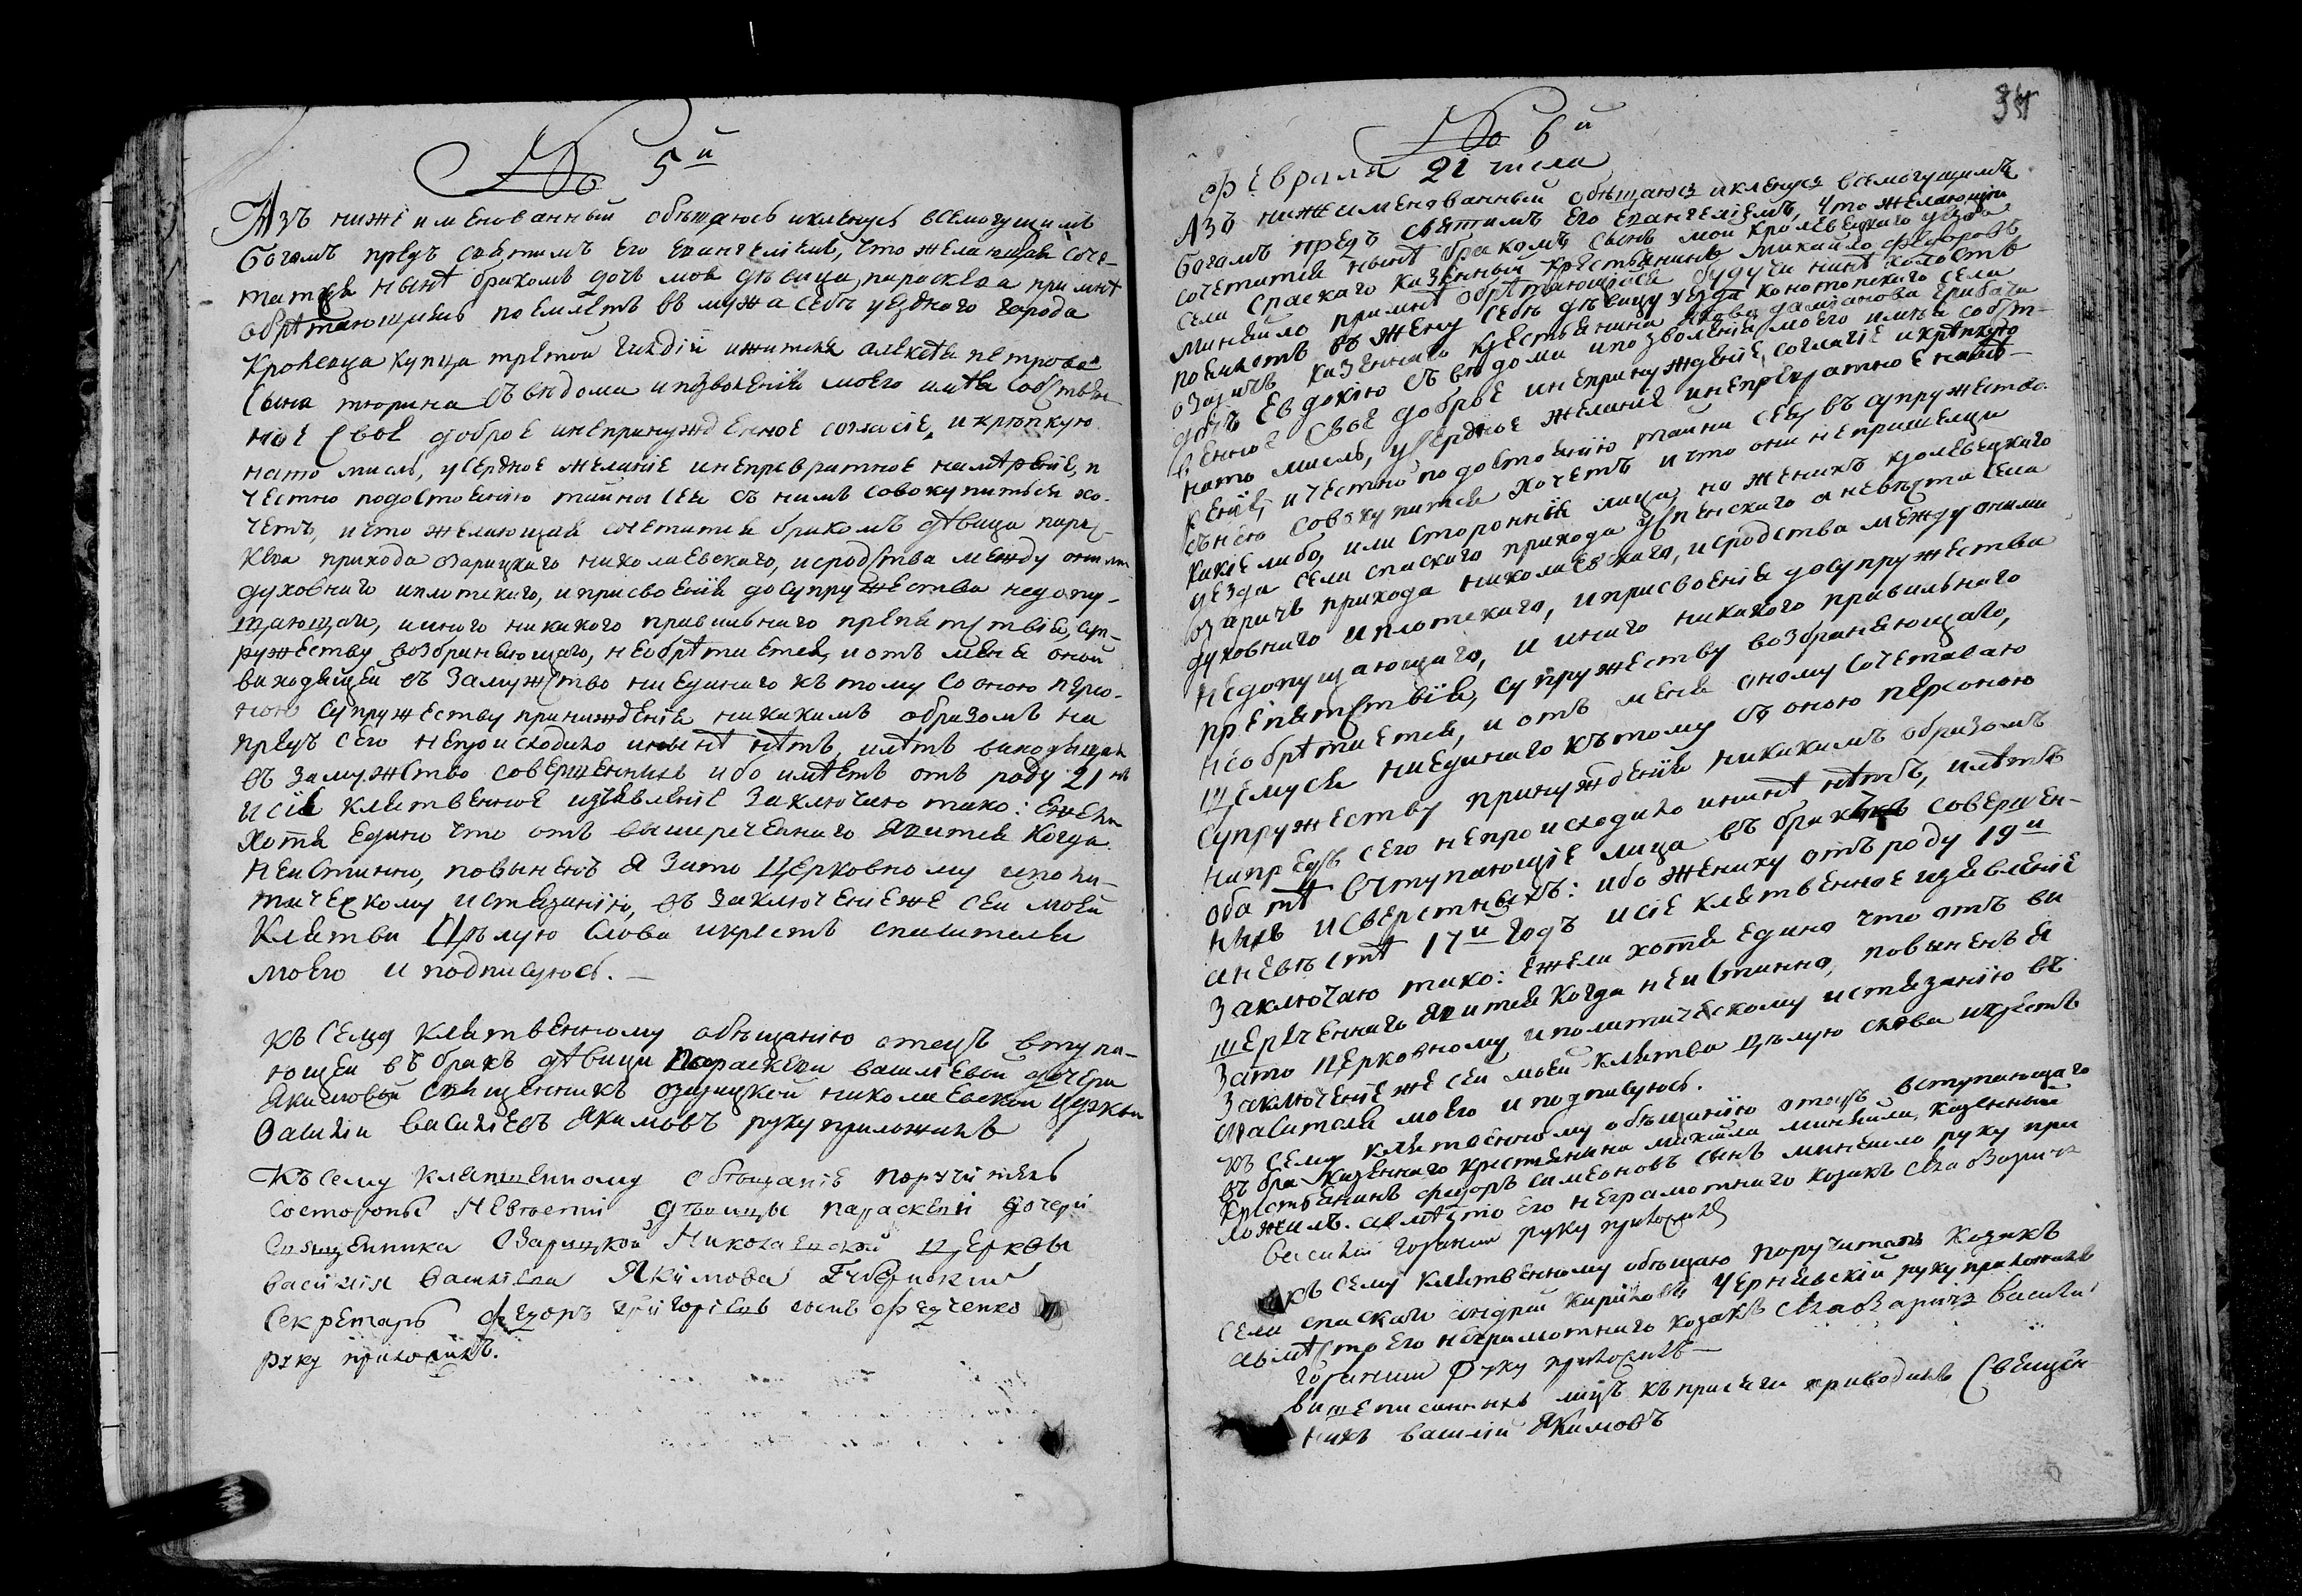 № 5й
Азъ нижеименованный обѣщаюсь и кленусь всемогущимъ
Богомъ предъ святымъ его евангелиемъ, что желающая соче-
татся нынѣ бракомъ дочь моя дѣвица параскева при мнѣ
обрѣтающаясь поемлетъ въ мужа себѣ уездного города
Кролевца купца третой гилдіи жителя алексѣя петрова
сына тюрина съ вѣдома и позволенія моего имѣя собствен-
ное свое доброе и непринужденное согласіе, и крѣпкую
на то мысль, усердное желаніе и непревратное намѣреніе, и
честно подостоянію тайны сея съ нимъ совокупиться хо-
четъ, и что желающая сочетатися бракомъ дѣвица парас-
кева прихода озарицкаго николаевскаго, и сродства между оними
духовнаго и плотскаго, и присвоенія до супружества недопу-
щающаго, и иного никакого правильнаго препятствія, суп-
ружеству возбраняющаго, не обрѣтается, и отъ меня оной
виходящей въ замужство ни единаго къ тому со оною персо-
ною супружеству принижденія никакимъ образомъ на
предъ сего непроисходило и нынѣ нѣтъ, и лѣтъ виходящая
въ замужство совершенныхъ ибо имѣетъ отъ роду 21 лѣ
и сіе клятвенное изъявленіе заключаю тако: ежели
хотя едино что отъ вышереченнаго явится когда
неистинно, повыненъ я зато церковному и поли-
тическому истязанію, въ заключеніе же сей моей
клятвы цѣлую слова и крестъ спасителя
моего и подписуюсь.
къ сему клятвенному обѣщанію отецъ вступа-
ющей въ бракъ дѣвици Параскеви василіевой дочери
якимовой священникъ озарицкой николаевской церкви
василій василіевъ якимовъ руку приложилъ
Къ сему клятвенному обѣщаніе поручитель
состороны Невѣсти дѣвицы параскевіи дочери
священника Озарицкой Николаевской церквы
василія василіева Якимова Губернскій
секретарь федоръ григоріевъ сынъ федченко
руку приложилъ.
34
№ 6й
февраля 21 числа
Азъ нижеименованный обѣщаюся и кленуся всемогущимъ
богомъ предъ святимъ его евангеліемъ, что желающій
сочетатися нынѣ бракомъ сынъ мой кролевецкаго уезда
села спаскаго казенный крестьянинъ михайло федоровъ
минайло при мнѣ обрѣтающійся будучи нинѣ холостъ
поемлетъ въ жену себѣ дѣвицу уезда конотопскаго села
озаричъ казеннаго крестьянина якова грибача
дочь евдокію съ вѣдома и позволенія моего имѣя собст-
венное свое доброе и непринужденное согласіе и крѣпкую
на то мысль, усердное желаніе и непревратное намѣ-
реніе, и честно подостоянію тайни сея въ супружество
съ нею совокупитися хочетъ и что они не пришелци
какіе либо, или сторонніе лица, но женихъ кролевецкаго
уезда села спаскаго прихода успенскаго а невѣста села
озаричъ прихода николаевскаго, и сродства между оними
духовнаго и плотскаго, и присвоенія до супружества
недопущающаго, и инаго никакого правильнаго
препятствія, супружеству возбраняющаго,
не обрѣтается, и отъ меня оному сочетаваю
щемуся ни единаго къ тому съ оною персоною
супружеству принужденія никакимъ образомъ
напредъ сего непроисходило и нинѣ нѣтъ, и лѣтъ
оба тѣ вступающіе лица въ бракъ совершен-
нихъ и сверстныхъ: ибо жениху отъ роду 19й
а невѣстѣ 17й годъ и сіе клятвенное изявленіе
заключаю тако: ежели хотя едино что отъ ви
шереченнаго явится когда неистинно, повыненъ я
зато церковному и политическому истязанію въ
заключеніе же сей моей клятви цѣлую слова и крестъ
спасителя моего и подписуюсь.
къ сему клятвенному обѣщанію отецъ вступающаго
въ бракъ казеннаго крестянина михаила минайла, казенный
крестьянинъ федоръ симеоновъ сынъ минайло руку при
ложилъ. а вмѣсто его неграмотнаго козакъ села Озаричъ
василій руку приложилъ
къ сему клятвенному обѣщаю поручитель козакъ
села спаскаго андрей кириловъ чернявскій руку приложилъ
а вмѣсто его неграмотнаго козакъ села Озаричъ василій
руку приложилъ
вишеписанныхъ лицъ къ присяги приводилъ священ
никъ василій Якимовъ